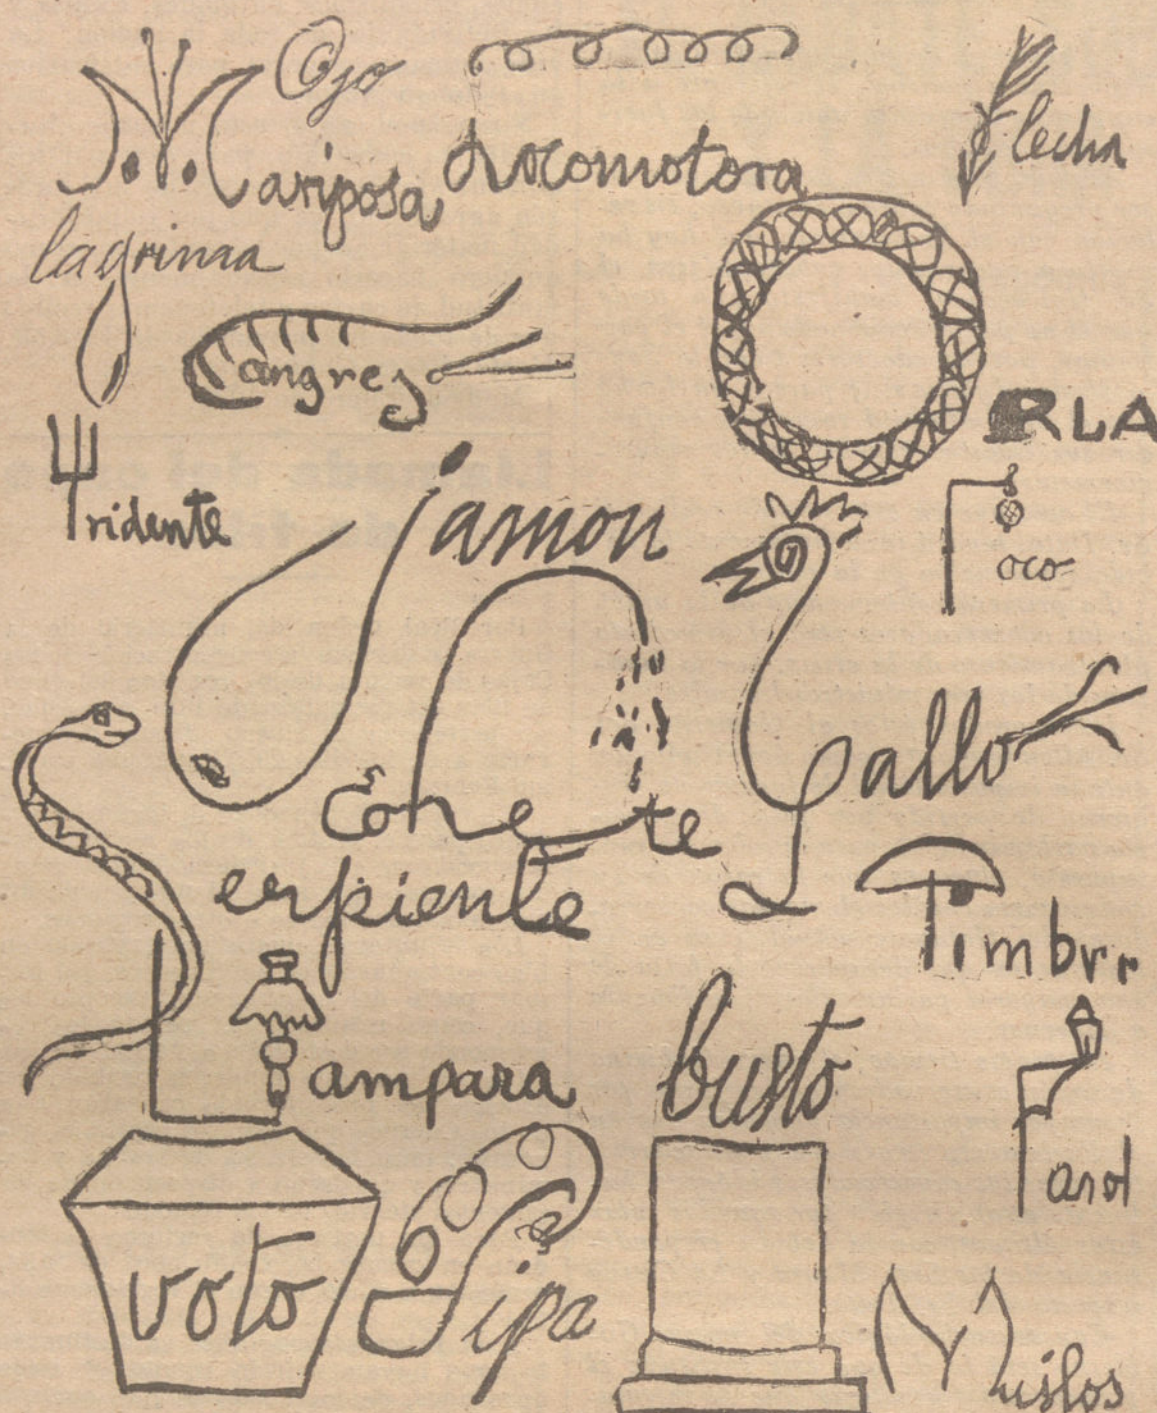 Ojo
Mariposa
Locomotora
Flecha
lagrima
Cangrejo
ORLA
Tridente
jamon
Foco
Gallo
Cohete
Serpiente
Timbrr
Lampara
busto
Farol
voto
Pipa
Muslos